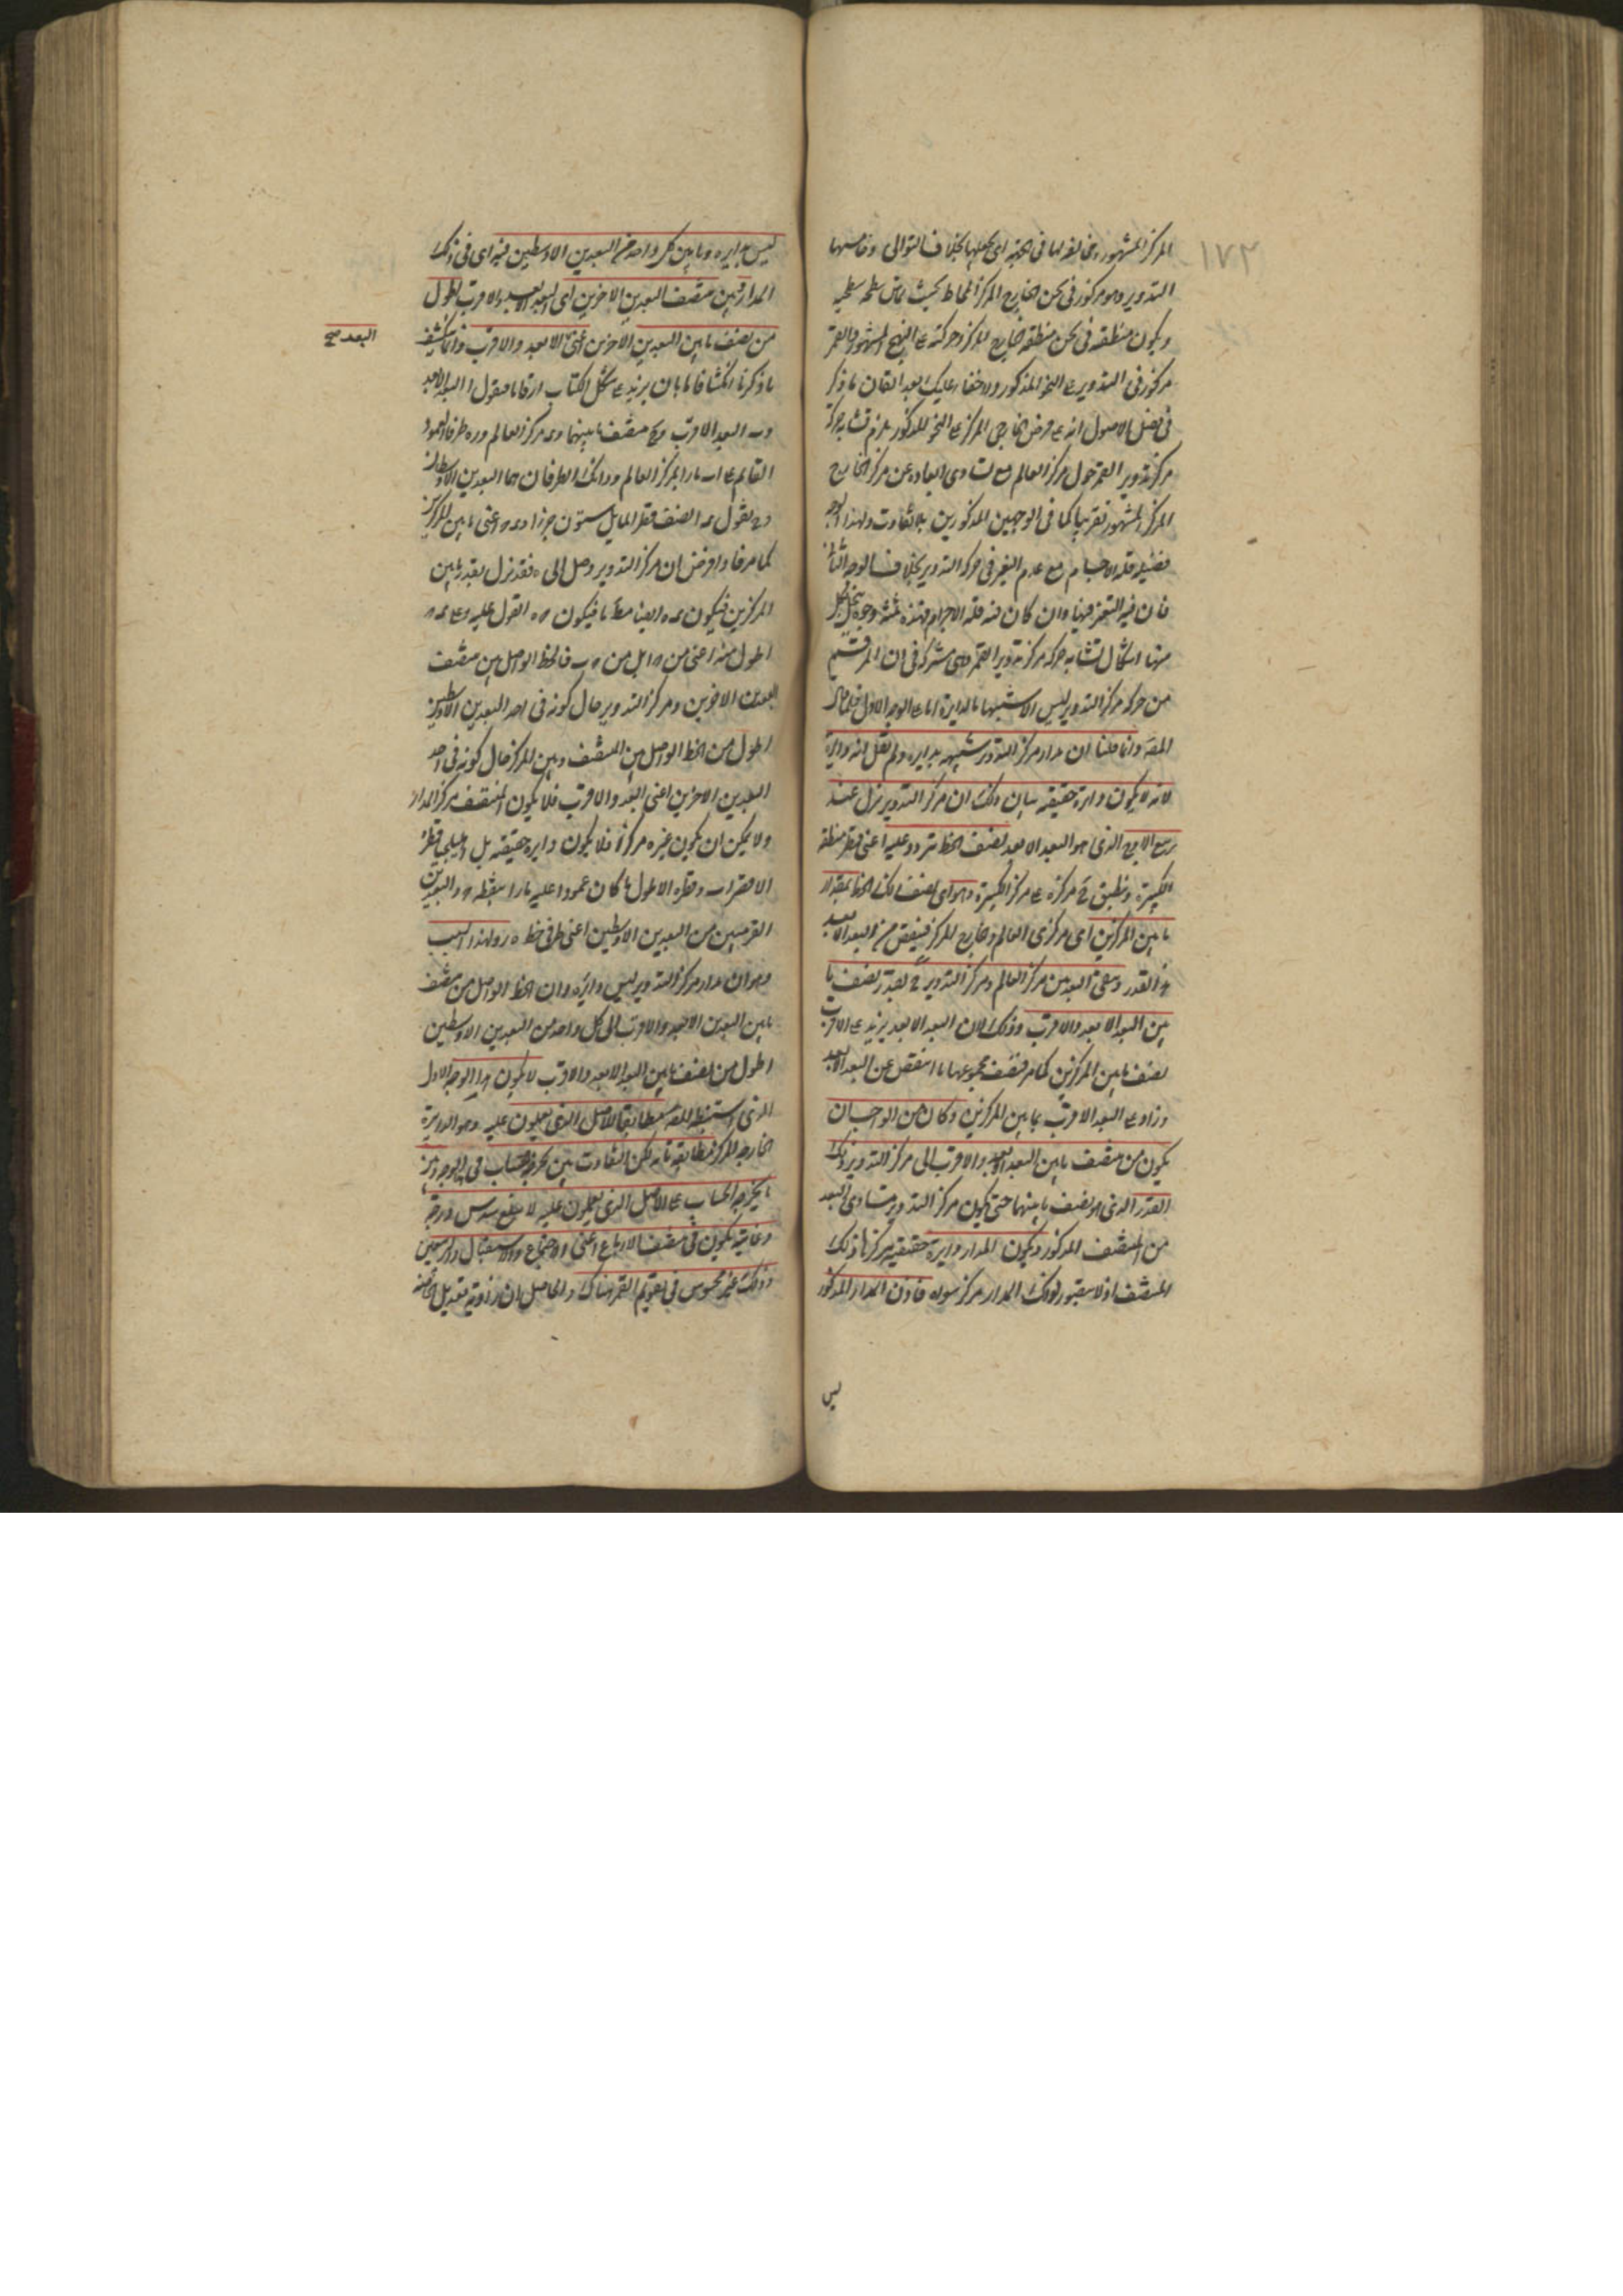 ١٧٣
المركز المشهور ويخالفها في الجهة اي يجعلها بخلاف التوالي وخامسها
التدوير وهو مركوز في ثخن الخارج المركز المحاط بحيث يماس سطحه سطحيه
ويكون منطقته في ثخن منطقة خارج المركز وحركته على النهج المشهور والقمر
مركوز في التدوير على النحو المذكور ولا خفاء عليك بعد اتقان ما ذكر
في فصل الاصول انه على فرض الخارجي المركز على النحو المذكور يلزم تشابه حركة
مركز تدوير القمر حول مركز العالم مع تساوي ابعاده عن مركز الخارج
المركز المشهور تقريبا كما في الوجهين المذكورين بلا تفاوت ولهذا الوجه
فضيلة قلة الاجسام مع عدم التغير في حركة التدوير بخلاف الوجه الثاني
فان فيه التغير فيها وان كان فيه قلة الاجرام فهذه ثلثة وجوه ينحل بكل
منها اشكال تشابه حركة مركز تدوير القمر وهي مشتركة في ان المرتسم
من حركة مركز التدوير ليس الا شبيها بالدايرة اما على الوجه الاول فلما قال
المصـ وانما قلنا ان مدار مركز التدوير شبيهه بدايرة ولم نقل انه دايرة
لانه لا يكون دايرة حقيقة بيان ذلك ان مركز التدوير نزل عند
ربع الاوج الذي هو البعد الابعد نصف الخط تتردد عليه اعني قطر منطقة
الكبيرة وينطبق ح مركزه على مركز الكبيرة وهو اي نصف ذلك الخط بمقدار
ما بين المركزين اي مركزي العالم وخارج المركز فينقص من البعد الابعد
هذا القدر وبقي البعد من مركز العالم ومركز التدوير ح بقدر نصف ما
بين البعد الابعد والاقرب وذلك لان البعد الابعد يزيد على الاقرب
بضعف ما بين المركزين كما مر فنصف مجموعهما ما انتقص عن البعد الابعد
وزاد على البعد الاقرب بما بين المركزين وكان من الواجب ان
يكون من منتصف ما بين البعد الابعد والاقرب الى مركز التدوير ذلك
القدر الذي هو نصف ما بينهما حتى يكون مركز التدوير متساوي البعد
من المنتصف المذكور ويكون المدار دايرة حقيقية مركزها ذلك
المنتصف اذ لا يتصور لذلك المدار مركز سواه فاذن المدار المذكور
ليس
ليس بدايرة وما بين كل واحد من البعدين الاوسطين فيه اي في ذلك
المدار وبين منتصف البعدين الاخرين اي البعد الابعد والاقرب اطول
من نصف ما بين البعدين الاخرين اعني الابعد والاقرب وانما ينكشف
البعد صح
ما ذكرنا انكشافا تاما بان يزيد على شكل الكتاب ارقاما فنقول ا البعد الابعد
وب البعد الاقرب وح منتصف ما بينهما وء مركز العالم وه ر طرفا العمود
القايم على اب مارا بمركز العالم وذانك الطرفان هما البعدين الاوسطان
وح نقول ء ا نصف قطر المايل ستون جزءا وء ح اعني ما بين المركزين
كما مر فاذا فرض ان مركز التدوير وصل الى ه فقد نزل بقدر ما بين
المركزين فيكون ء ه ايضا مط ما فيكون ح ه القوي عليه وعلى ء ح
اطول منه اعني من ح ا بل من ح ب فالخط الواصل بين منتصف
البعدين الاخرين ومركز التدوير حال كونه في احد البعدين الاوسطين
اطول من الخط الواصل بين المنتصف وبين المركز حال كونه في احد
البعدين الاخرين اعني الابعد والاقرب فلا يكون المنتصف مركز المدار
ولا يمكن ان يكون غيره مركزا فلا يكون دايرة حقيقة بل اهليلجيا قطره
الاقصر اب وقطره الاطول ما كان عمودا عليه مارا بنقطة ح والبعدين
القريبين من البعدين الاوسطين اعني طرفي خط ه ر ولهذا السبب
وهو ان مدار مركز التدوير ليس دائرة وان الخط الواصل من منتصف
ما بين البعدين الابعد والاقرب الى كل واحد من البعدين الاوسطين
اطول من نصف ما بين البعد الابعد والاقرب لا يكون هذا الوجه الاول
الذي استنبطه المصـ مطابقا للاصل الذي يعملون عليه وهو الدايرة
الخارجة المركز مطابقة تامة لكن التفاوت بين ما يخرجه الحساب في هذا الوجه وبين
ما يخرجه الحساب على الاصل الذي يعملون عليه لا يبلغ سدس درجة
وغايته يكون في منتصف الارباع اعني الاجتماع والاستقبال والتربيعين
وذلك غير محسوس في تقويم القمر هناك والحاصل ان زاوية تعديل الخاصة